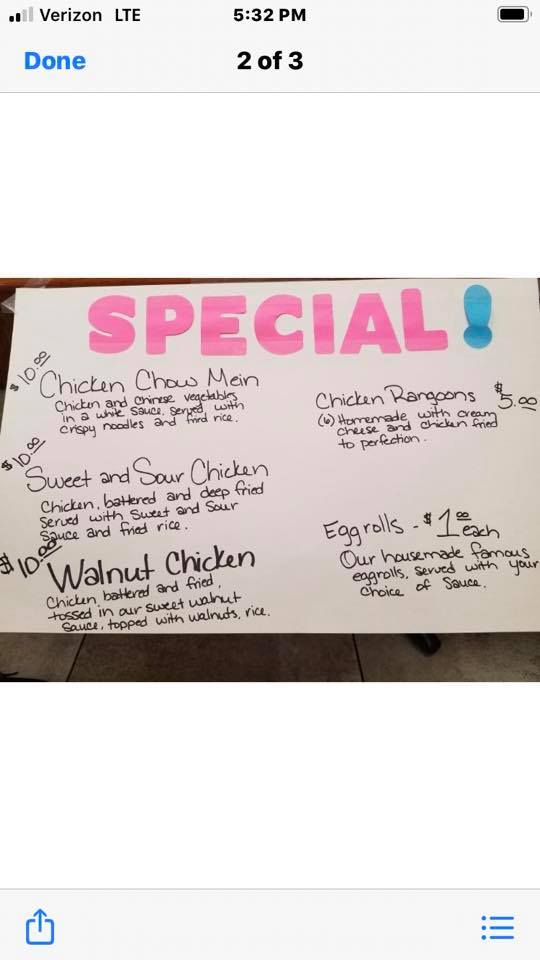 Verizon LTE
5:32 PM
Done
2 of 3
SPECIAL!
$10.00
Chicken Chow Mein
Chicken and Chinese vegetables
in a white sauce, served with
crispy noodles and fried rice.
$10.00
Sweet and Sour Chicken
Chicken, battered and deep fried
Served with Sweet and Sour
Sauce and fried rice.
$10.00
Walnut Chicken
Chicken battered and fried,
tossed in our sweet walnut
Sauce, topped with walnuts, rice.
Chicken Rangoons $5.00
(6) Homemade with cream
cheese and chicken fried
to perfection.
Eggrolls - $1.00 each
Our housemade famous
eggrolls, served with your
Choice of Sauce.